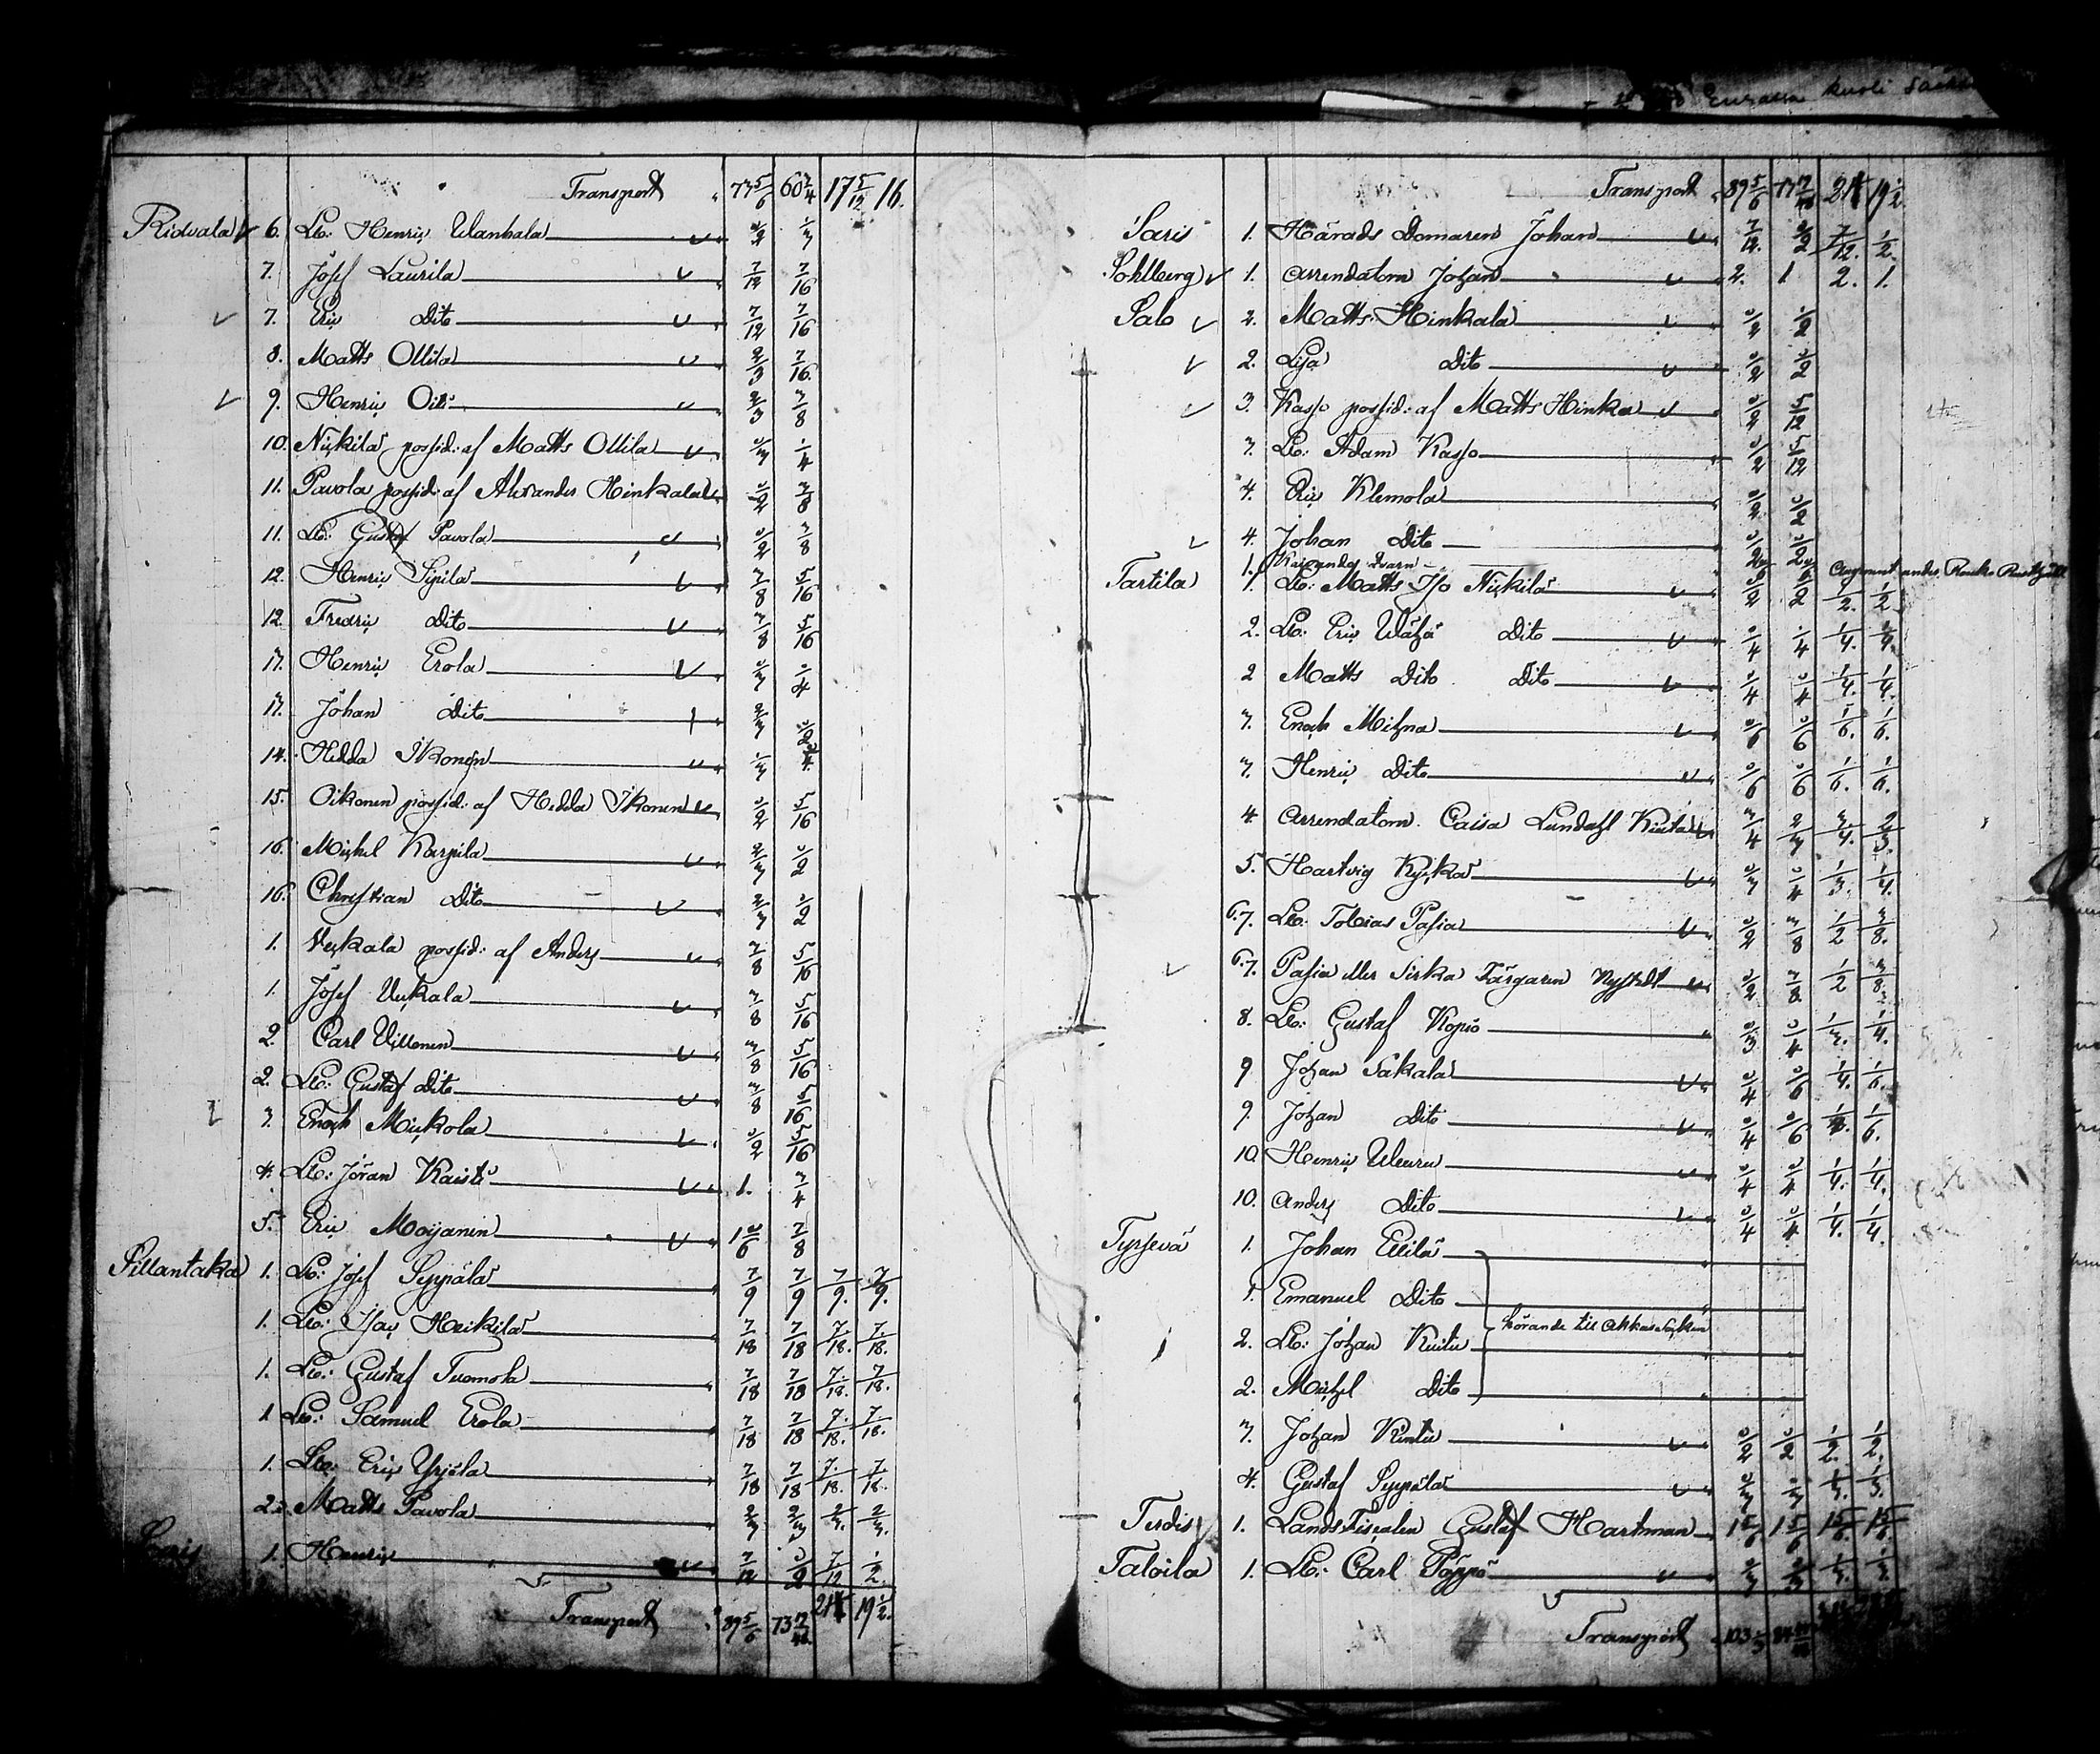 Transport 77 5/6 60 3/4 17 5/12 16.
Ridvala 6. Lb: Henric Wanhala 1/2 1/3
7. Josef Laurila 7/12 7/16
7. Eric Dito 7/12 7/16
8. Matts Ollila 2/3 7/16.
9. Henric Oiti 2/3 3/8
10. Nickilä possid: af Matts Ollila 1/3 1/4
11. Pavola possid: af Alexander Hinkala 1/2 3/8
11. Lb: Gustaf Pavola 1/2 3/8
12. Henric Sipilä 3/8 5/16
12. Fredric Dito 3/8 5/16
13. Henric Erola 1/3 1/4
13. Johan Dito 2/3 1/2
14. Hedda Ikonen 1/3 1/4
15. Oikonen possid: af Hedda Ikonen 1/2 5/16
16. Michel Karpila 2/3 1/2
16. Christian Dito 2/3 1/2
1. Uckala possid: af Anders 3/8 5/16
1. Josef Uckala 3/8 5/16
2. Carl Villonen 3/8 5/16
2. Lb: Gustaf Dito 3/8 5/16
3. Enoch Mickola 1/2 5/16
4. Lb: Jöran Kaisti 1. 3/4
5. Eric Moijanen 1 1/6 7/8
Sillantaka 1. Lb: Josef Syppälä 7/9 7/9 7/9. 7/9.
1. Lb: Isac Heikilä 7/18 7/18 7/18. 7/18.
1. Lb: Gustaf Tuomola 7/18 7/18 7/18. 7/18.
1 Lb: Samuel Erola 7/18 7/18 7/18. 7/18.
1. Lb: Eric Yrjölä 7/18 7/18 7/18. 7/18.
2. Matts Pavola 2/3 2/3 2/3. 2/3.
Saris 1. Henric 7/12 1/2 7/12 1/2.
Transport 89 5/6 73 19 1/2.
Transport 89 5/6 19 1/2
Saris 1. Härads Domaren Johan 7/12. 1/2 7/12. 1/2.
Sohlberg 1. Arrendatorn Johan 2. 1 2. 1.
Salo 2. Matts Hinkala 1/2 1/2
2. Lisa Dito 1/2 1/2
3. Kasso possid: af Matts Hinka 1/2 5/12
3. Lb: Adam Kasso 1/2 5/12
4. Eric Klemola 1/2 1/2
4. Johan Dito 1/2 1/2
1. Qvarn Augment under Rusthåll
Tartila 1. Lb: Matts Iso Nickilä 1/2 1/2 1/2. 1/2
2. Lb: Eric Wähä Dito 1/4 1/4 1/4. 1/4.
2 Matts Dito Dito 1/4 1/4 1/4. 1/4.
3. Enoch Mikna 1/6 1/6 1/6. 1/6.
3. Henric Dito 1/6 1/6 1/6. 1/6.
4. Arrendatorn Caisa Lundahl 3/4 2/3 3/4. 2/3.
5. Hartvig Kyckä 1/3 1/4 1/3. 1/4.
6.7. Lb: Tobias Pasia 1/2 3/8 1/2 3/8.
6.7. Pasia eller Sirka Färgaren Nystedt 1/2 3/8 1/2 3/8.
8. Lb: Gustaf Kopio 1/3 1/4 1/3. 1/4.
9 Johan Sakala 1/4 1/6 1/4. 1/6.
9. Johan Dito 1/4 1/6 1/4. 1/6.
10. Henric 1/4 1/4 1/4. 1/4.
10. Anders Dito 1/4 1/4 1/4. 1/4.
Tyrjevä 1. Johan Ellilä
1. Emanuel Dito
hörande till Akkas Socken
2. Lb: Johan Kuitu
2. Michel Dito
3. Johan Kuitu 1/2 1/2 1/2. 1/2.
4. Gustaf Syppälä 1/3 1/3 1/3. 1/3.
Terdis 1. Lands Fiscalen Gustaf Hartman 1 5/6 1 5/6 1 5/6. 1 5/6.
Taloila 1. Lb: Carl Pappo 1/3 1/3 1/3. 1/3.
Transport 103